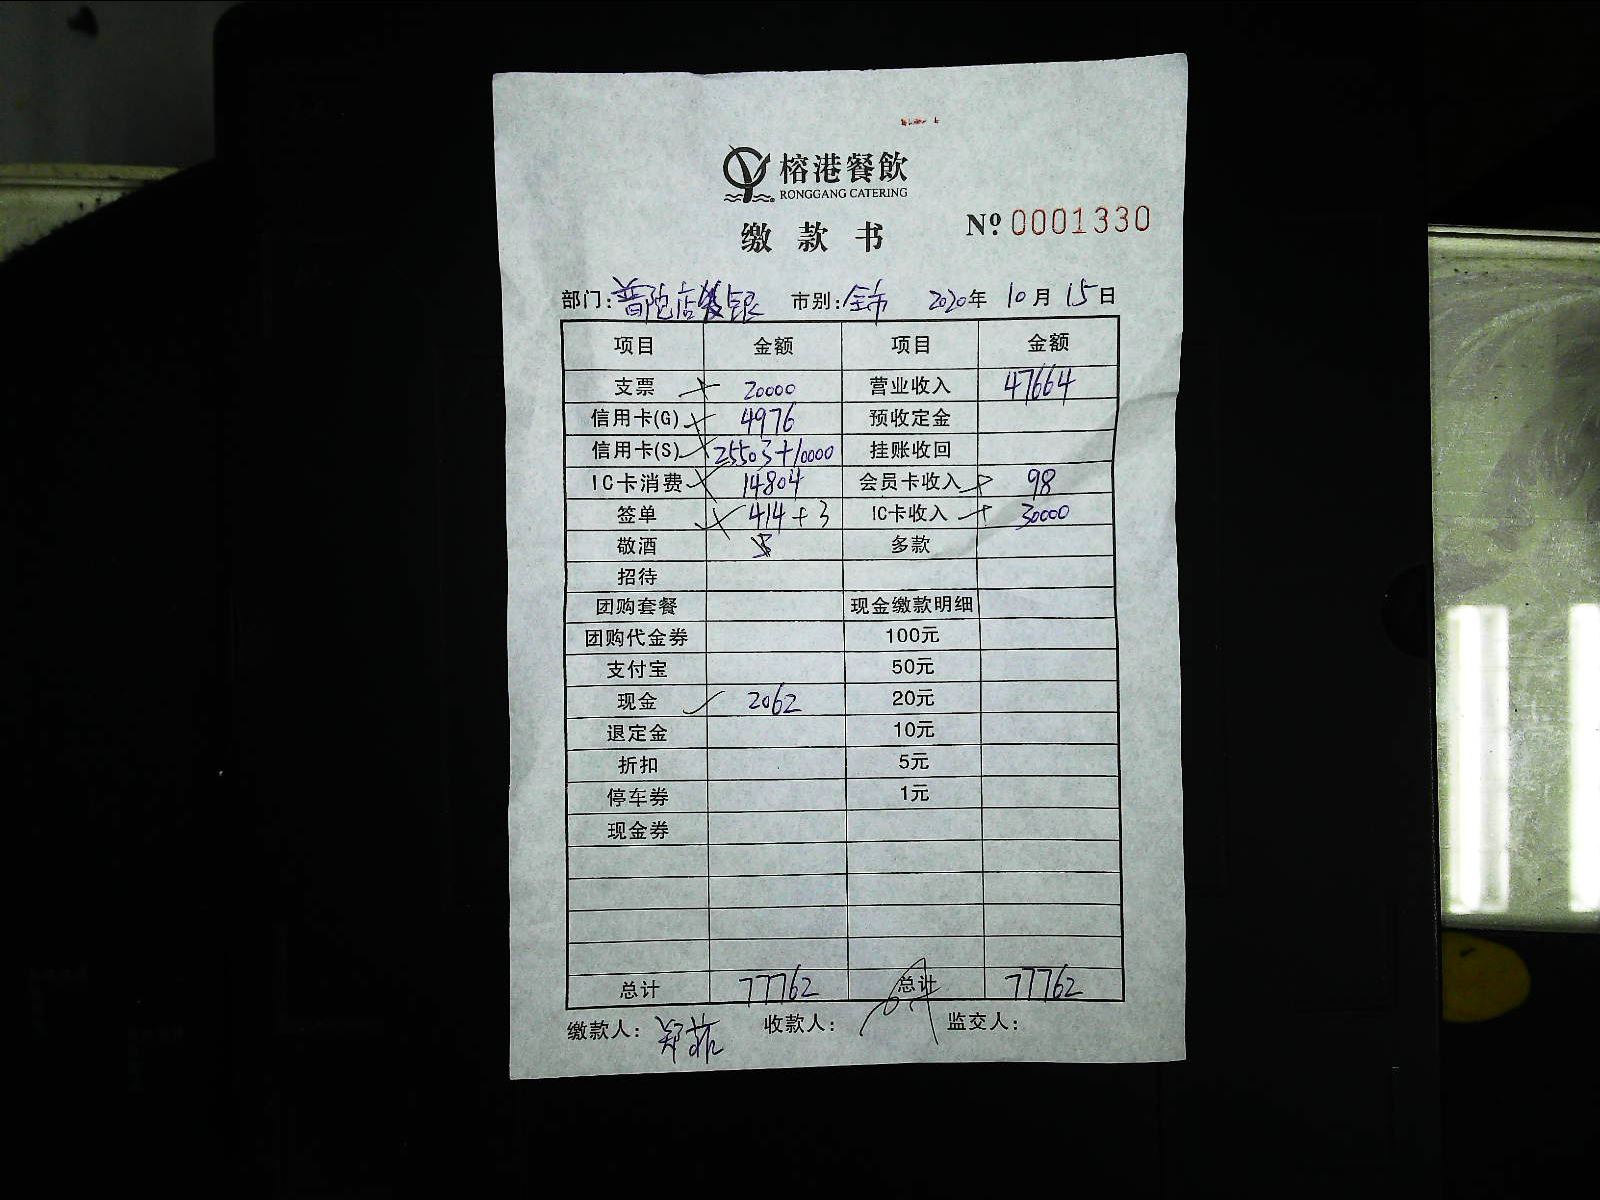 榕港餐飲
RONGGANG CATERING
缴款书 Nº 0001330
部门: 普陀店收银 市别: 全市 2020年 10月 15日
项目 金额 项目 金额
支票 20000 营业收入 47664
信用卡(G) 4976 预收定金
信用卡(S) 25503+10000 挂账收回
IC卡消费 14804 会员卡收入 98
签单 414+3 IC卡收入 30000
敬酒 多款
招待
团购套餐 现金缴款明细
团购代金券 100元
支付宝 50元
现金 2062 20元
退定金 10元
折扣 5元
停车券 1元
现金券
总计 77762 总计 77762
缴款人: 收款人: 监交人: